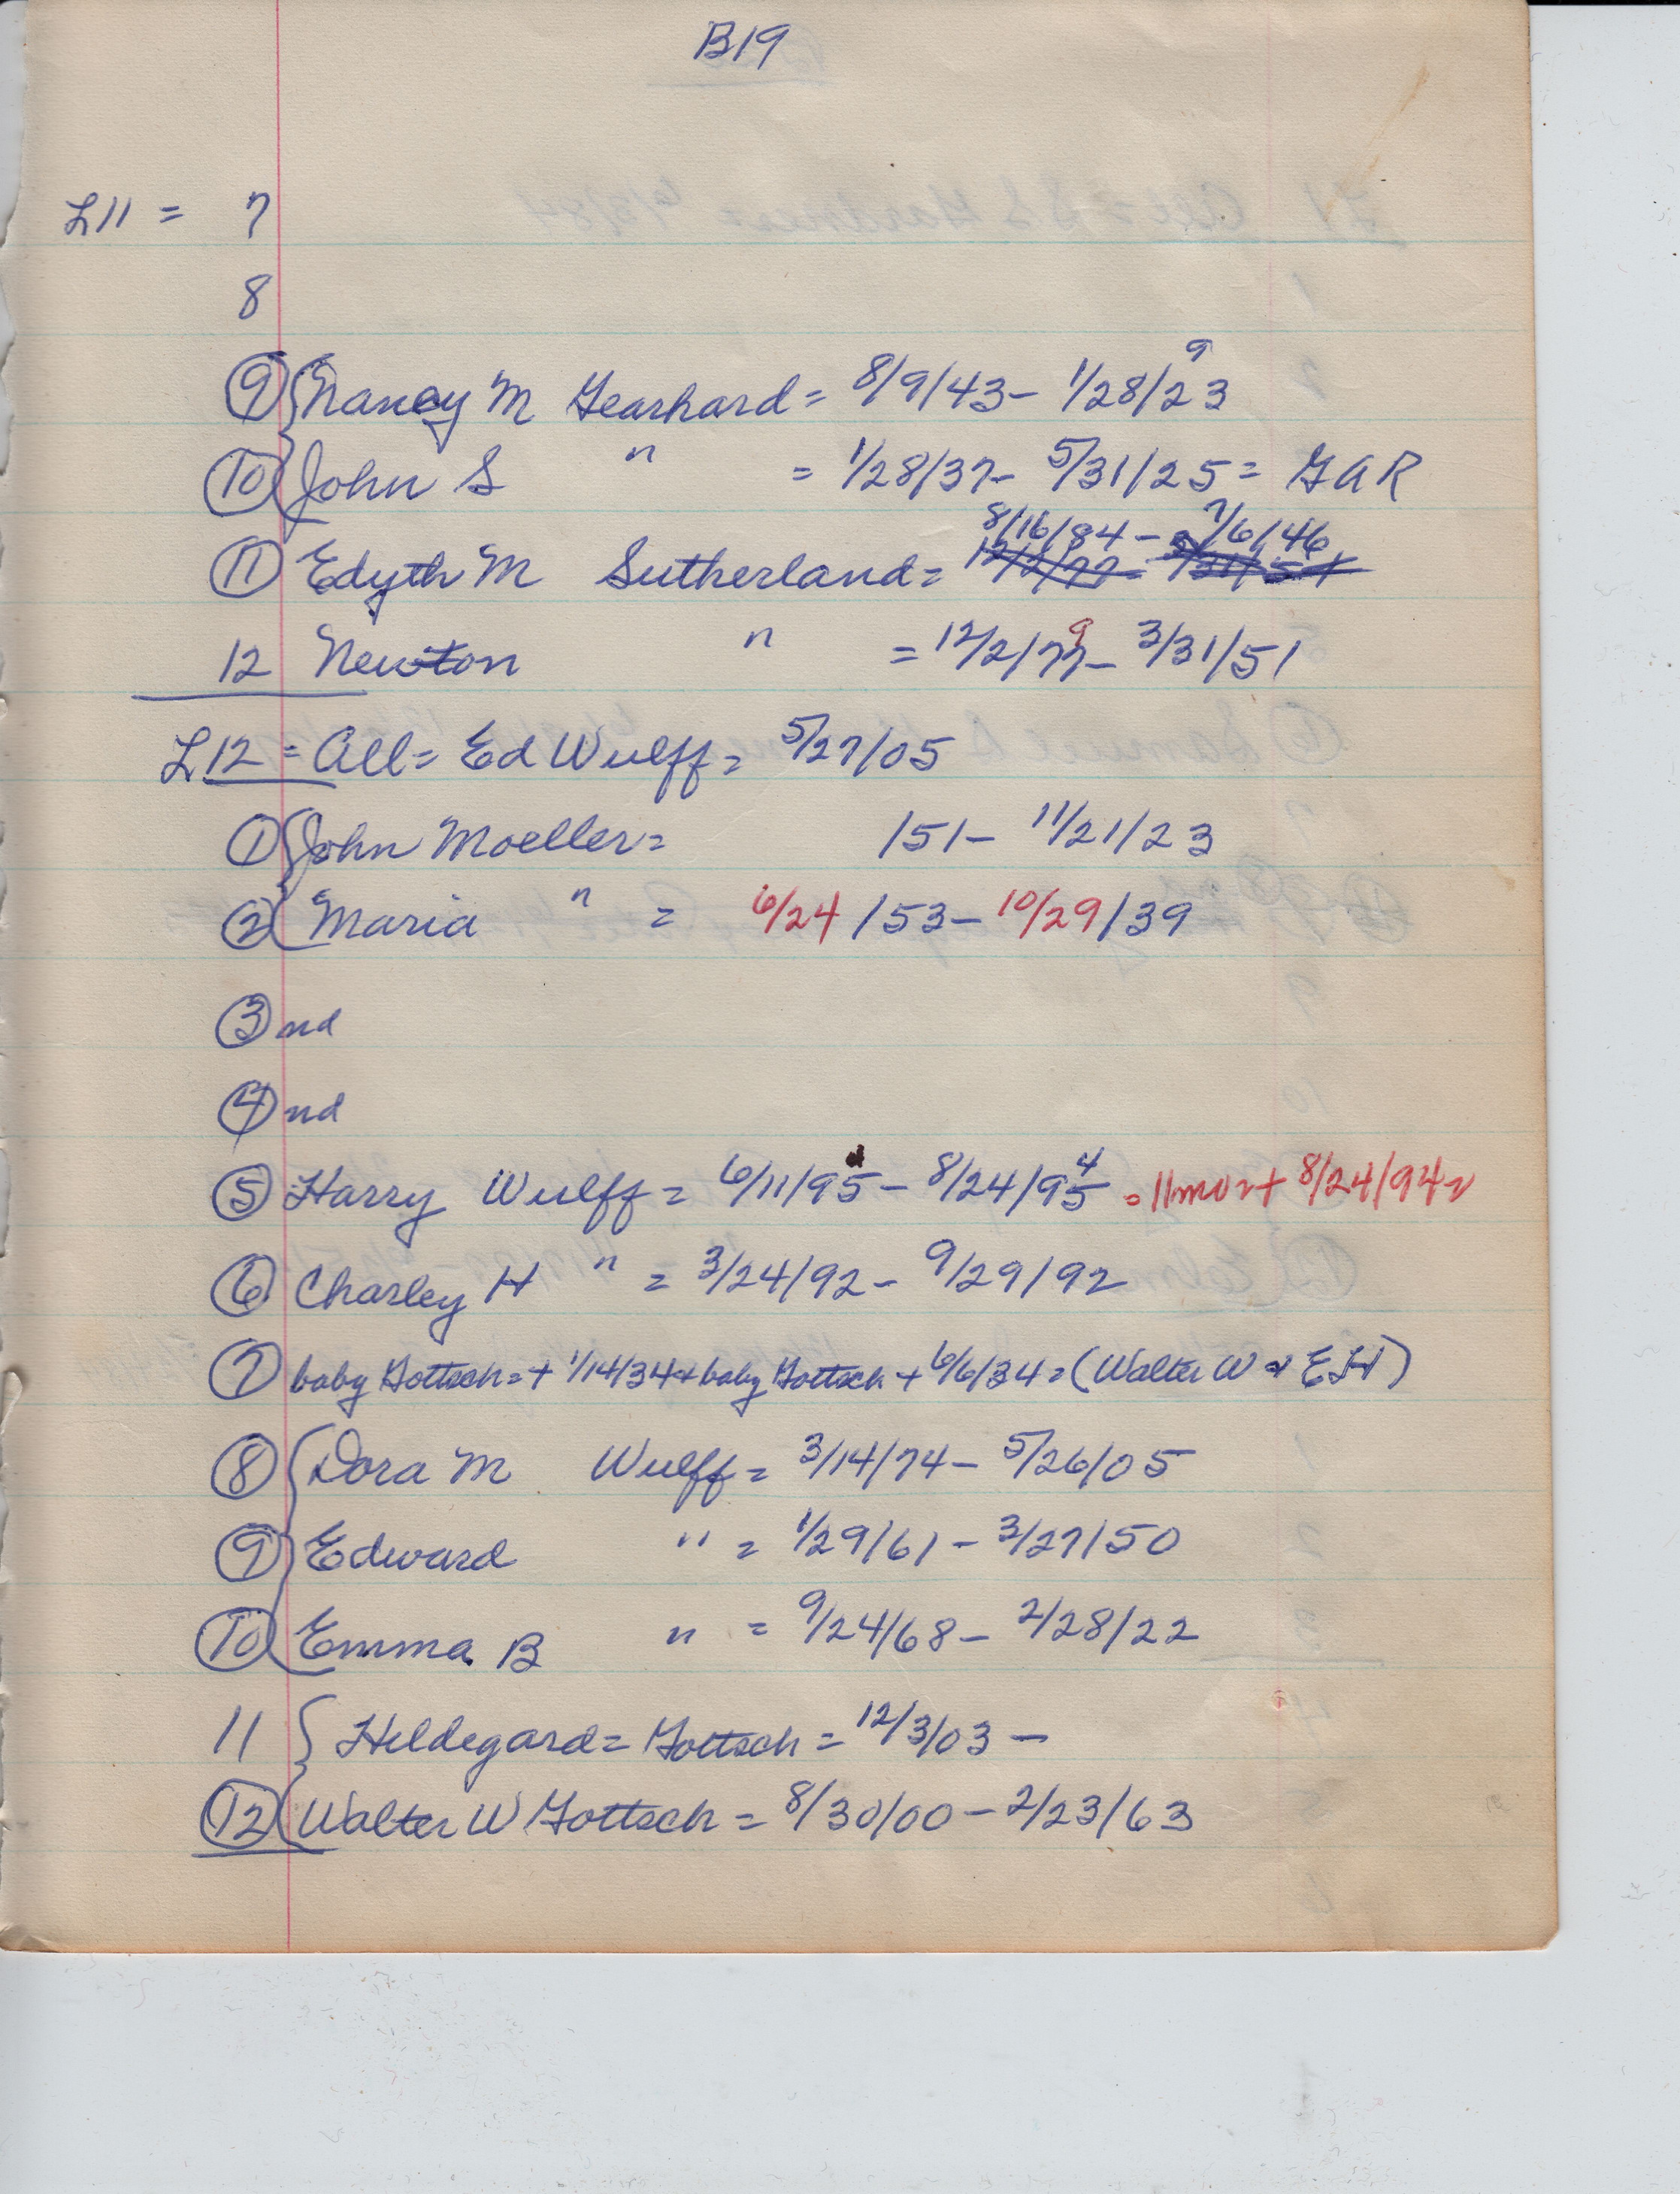 B19
L11 = 7
8
⑨ Nancy M Gearhard = 8/9/43 - 1/28/23 9
⑩ John S " = 1/28/37 - 5/31/25 = GAR
8/16/84 - 7/6/46
⑪ Edyth M Sutherland = 12/2/77 -
12 Newton " = 12/2/77 9 - 3/31/51
L12 = All = Ed Wulff = 5/27/05
① John Moeller = /51 - 11/21/23
② Maria " = 6/24/53 - 10/29/39
③ nd
④ nd
⑤ Harry Wulff = 6/11/95 - 8/24/95 4 = 11mos + 8/24/94
⑥ Charley H " = 3/24/92 - 9/29/92
⑦ baby Gottsch = + 1/14/34 + baby Gottsch + 6/6/34 = (Walter W & EH)
⑧ Dora M Wulff = 3/14/74 - 5/26/05
⑨ Edward " = 1/29/61 - 3/27/50
⑩ Emma B " = 9/24/68 - 2/28/22
11 Hildegard = Gottsch = 12/3/03 -
⑫ Walter W Gottsch = 8/30/00 - 2/23/63